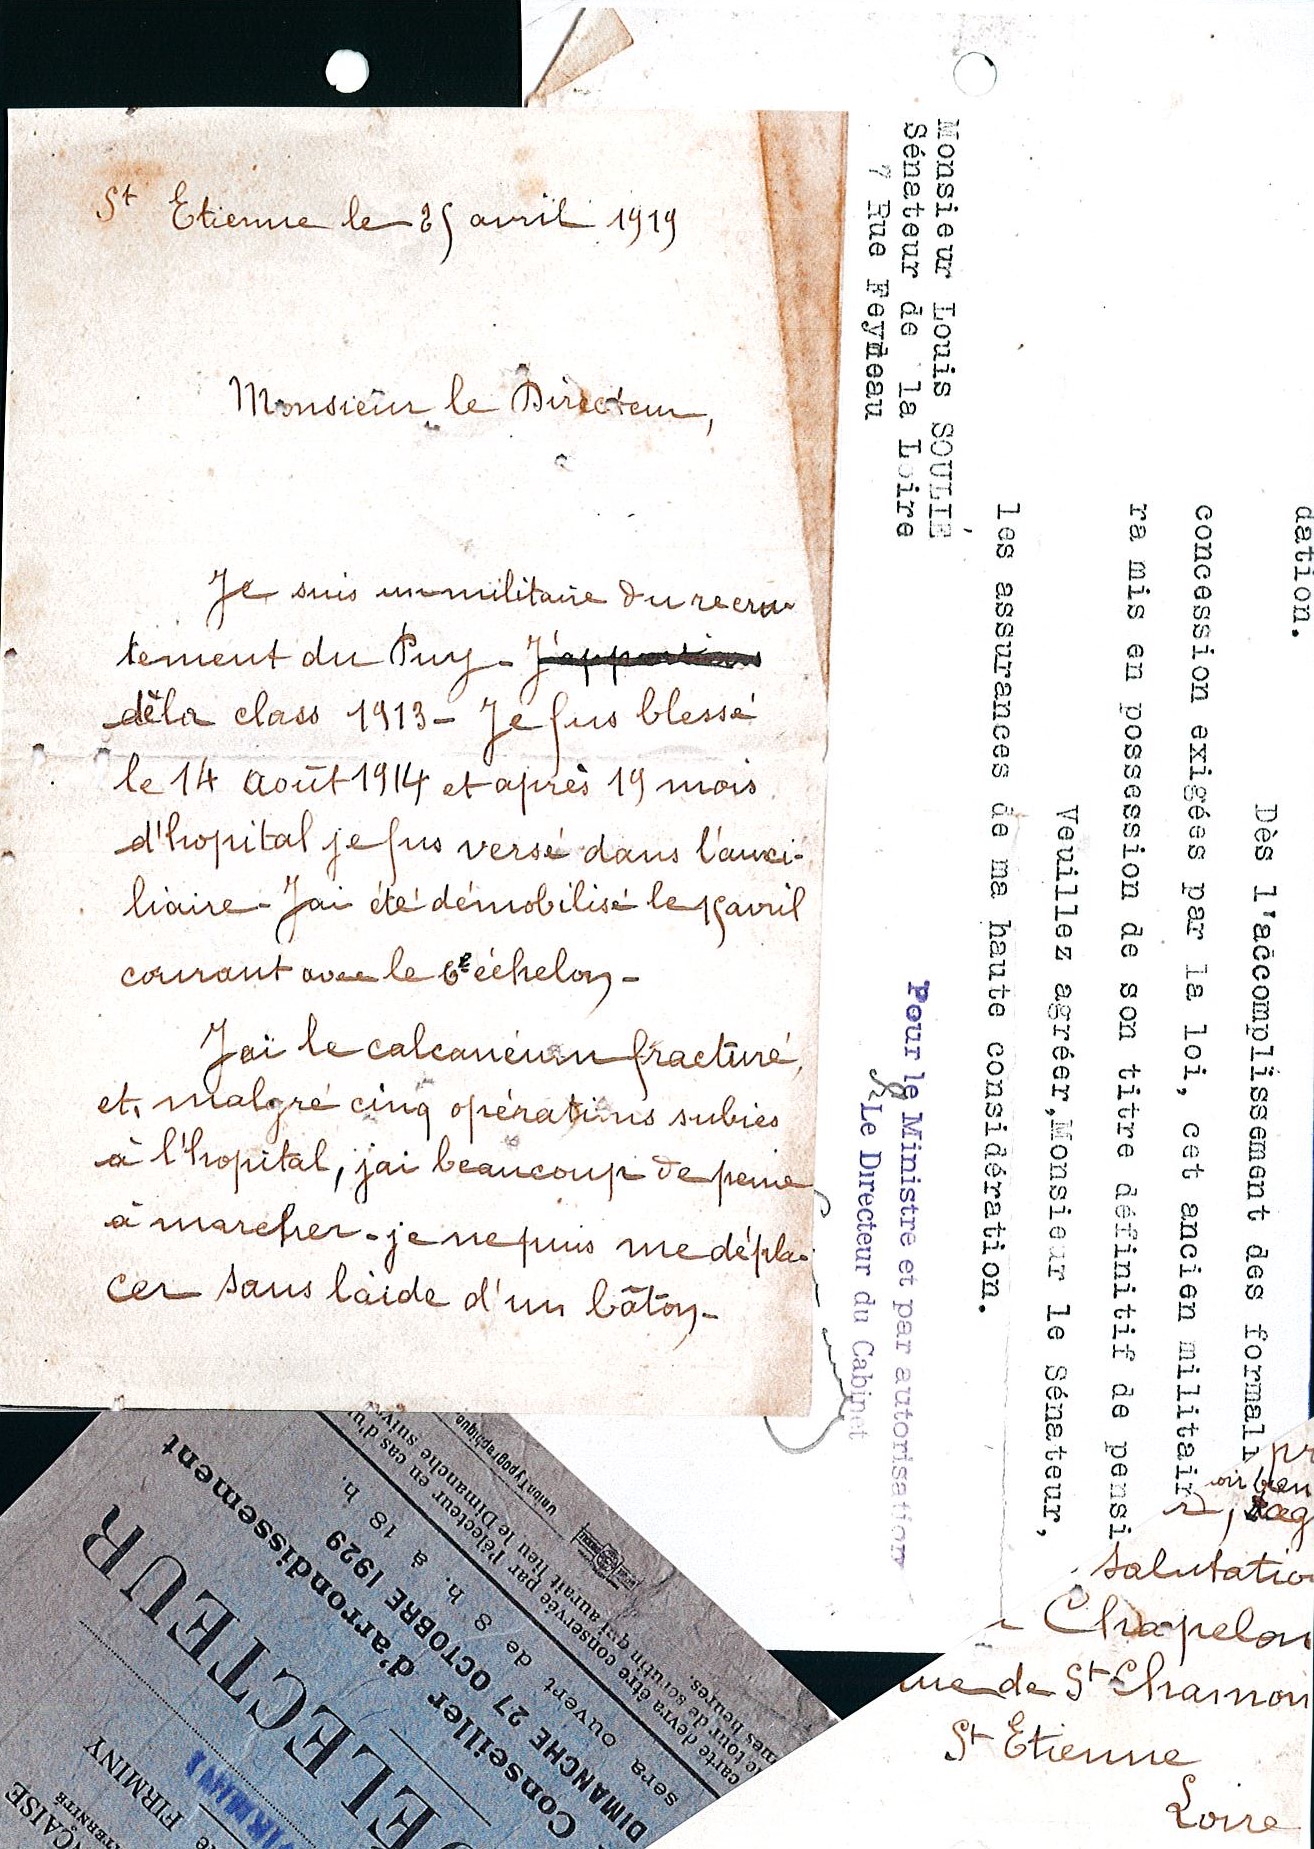 St Etienne le 25 avril 1919
Monsieur le Directeur,
Je suis un militaire du recru-
tement du Puy - J'appartiens
de la class 1913 - Je fus blessé
le 14 Août 1914 et après 19 mois
d'hopital je fus versé dans l'auxi-
liaire - J'ai été démobilisé le 15 avril
courant avec le 6e échelon -
J'ai le calcanéum fracturé,
et, malgré cinq opérations subies
à l'hopital, j'ai beaucoup de peine
à marcher - je ne puis me dépla-
cer sans l'aide d'un bâton -
dation.
Dès l'accomplissement des formali
concession exigées par la loi, cet ancien militair
ra mis en possession de son titre définitif de pensi
Veuillez agréer,Monsieur le Sénateur,
les assurances de ma haute considération.
Pour le Ministre et par autorisation
Le Directeur du Cabinet
Monsieur Louis SOULIÉ
Sénateur de la Loire
7 Rue Feydeau
salutatio
Chapelon
ue de St Chamon
St Etienne
Loire
ÇAISE
TERNITÉ
FIRMINY
FIRMINY
ÉLECTEUR
Conseiller d'arrondissement
DIMANCHE 27 OCTOBRE 1929
sera ouvert de 8 h. à 18 h.
carte devra être conservée par l'électeur en cas d'u
tour de scrutin qui aurait lieu le Dimanche suiv
mes heures.
Union Typographique